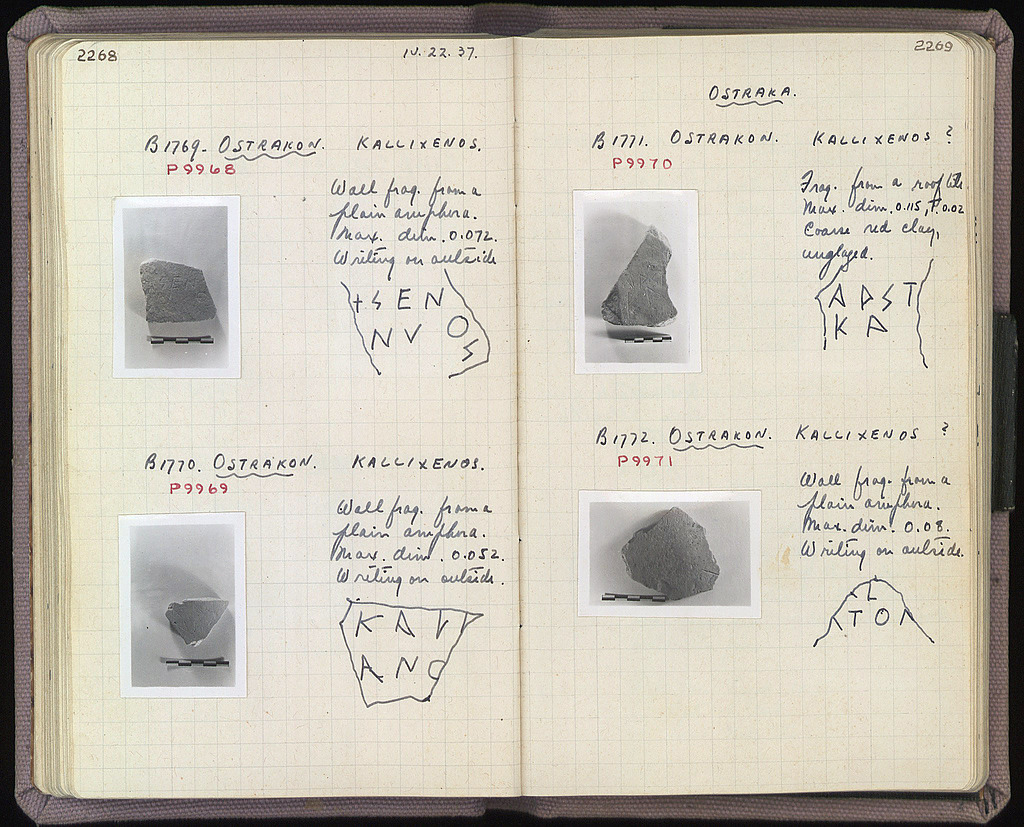 2268
IV. 22. 37.
B1769. OSTRAKON. KALLIXENOS.
P9968
Wall frag. from a
plain amphora.
Max. dim. 0.072.
Writing on outside
B1770. OSTRAKON. KALLIXENOS.
P9969
Wall frag. from a
plain amphora.
Max. dim. 0.052.
Writing on outside.
2269
OSTRAKA.
B1771. OSTRAKON. KALLIXENOS ?
P9970
Frag. from a roof tile.
Max. dim. 0.115, T. 0.02
Coarse red clay,
unglazed.
B1772. OSTRAKON. KALLIXENOS ?
P9971
Wall frag. from a
plain amphora.
Max. dim. 0.08.
Writing on outside.